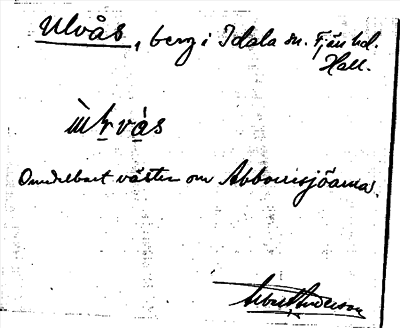 Ulvås, berg i Idala sn. Fjäre hd.
Hall.
Omedelbart väster om Abborrsjöarna.
Albert Anderson